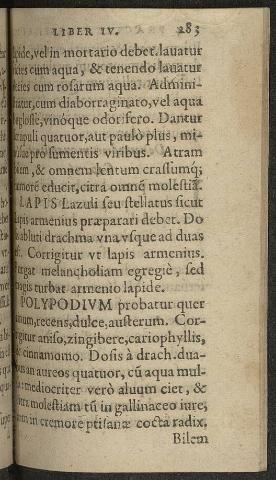 LIBER IV. 283
pide, vel in mortario debet. lauatur
cies cum aqua, & tenendo lauatur
ecies cum rosarum aqua. Admini-
atur, cum diaborraginato, vel aqua
glossę, vinóque odorifero. Dantur
rupuli quatuor, aut paulò plus, mi-
pro sumentis viribus. Atram
em, & omnem lentum crassumq;
morē educit, citra omnē molestiā.
LAPIS Lazuli seu stellatus sicut
lapis armenius præparari debet. Do
abluti drachma vna vsque ad duas
est. Corrigitur vt lapis armenius.
rgat melancholiam egregiè, sed
magis turbat armeno lapide.
POLYPODIVM probatur quer
num, recens, dulce, austerum. Cor-
igitur aniso, zingibere, cariophyllis,
cinnamomo. Dosis à drach. dua-
us an aureos quatuor, cū aqua mul-
mediocriter verò aluum ciet, &
tra molestiam tū in gallinaceo iure,
m in cremore ptisanæ cocta radix.
Bilem